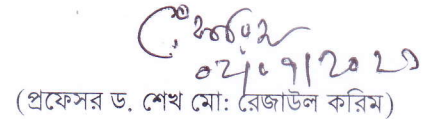 ০২/০৭/২০২৩
(প্রফেসর ড. শেখ মো: রেজাউল করিম)